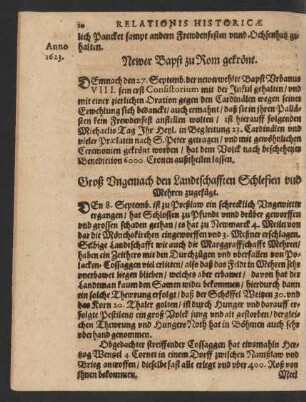 20 RELATIONIS HISTORICÆ
lich Pancket sampt andern Frewdenfesten vnnd Ochsenhatz ge-
halten.
Anno
1623.
Newer Bapst zu Rom gekrönt.
DEmnach den 27. Septemb. der newerwehlte Bapst Vrbanus
VIII. sein erst Consistorium mit der Inful gehalten / vnd
mit einer zierlichen Oration gegen den Cardinälen wegen seiner
Erwehlung sich bedanckt / auch ermahnt / daß sie in ihren Palläs-
sten kein Frewdenfest anstellen wolten / ist hierauff folgenden
Michaelis Tag Ihr Heyl. in Begleitung 23. Cardinälen vnd
vieler Prælaten nach S. Peter getragen / vnd mit gewöhnlichen
Ceremonien gekrönt worden / hat dem Volck nach beschehener
Benediction 6000 Cronen außtheilen lassen.
Groß Vngemach den Landtschafften Schlesien vnd
Mehren zugefügt.
DEn 8. Septemb. ist zu Preßlaw ein schrecklich Vngewitter
ergangen / hat Schlossen zu Pfundt vnnd drüber geworffen
vnd grossen schaden gethan / es hat zu Newmarck 4. Meiln von
dar die Mönchskirchen eingeworffen vnd 2. Müßner erschlagen.
Selbige Landschafft wie auch die Marggraffschafft Mehrn /
haben ein Zeithero mit den Durchzügen vnd vberfallen von Po-
lacken Cossaggen viel erlitten / also daß das Feldt in Mehren sehr
vnerbawet ligen blieben / weiches aber erbawt / davon hat der
Landtman kaum den Samen wider bekommen / hierdurch dann
ein solche Thewrung erfolgt / daß der Schöffel Weitzn 30. vnd
das Korn 20. Thaler golten / ist durch Hunger vnd darauff er-
folgte Pestilentz ein groß Volck jung vnd alt gestorben / dergleí-
chen Thewrung vnd Hungers Noth hat in Böhmen auch sehr
oberhand genommen.
Obgedachter streiffender Cossaggen hat eins mahln Her-
tzog Wentzel 4 Cornet in einem Dorff zwischen Namslaw vnd
Brieg antroffen / dieselbe fast alle erlegt vnd vber 400. Roß von
ihnen bekommen.
Meil